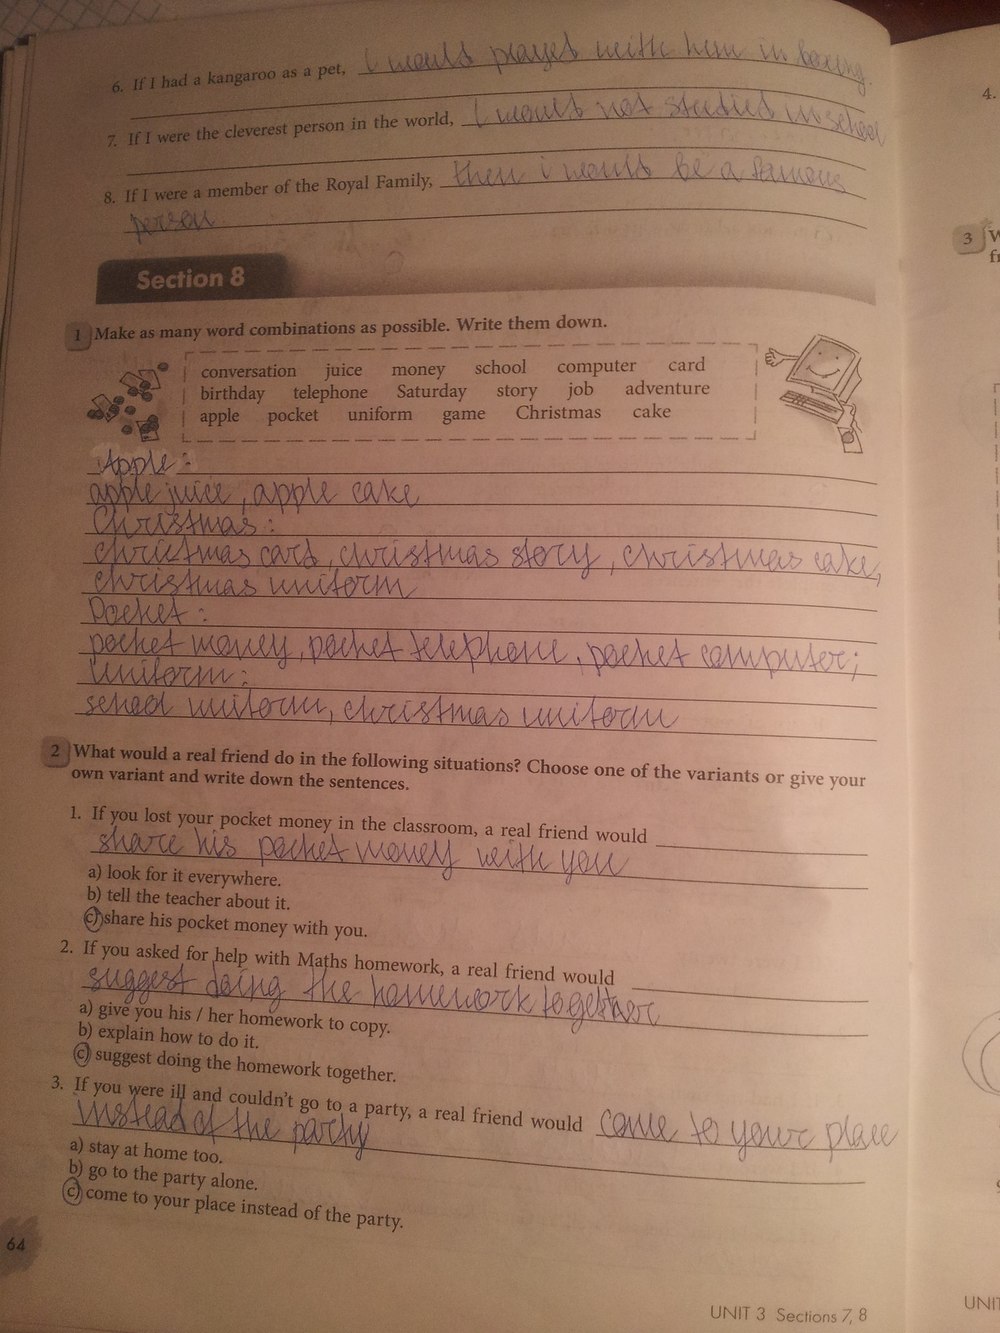 6. If I had a kangaroo as a pet, I would played with him in boxing.
7. If I were the cleverest person in the world, I would not studied in school
8. If I were a member of the Royal Family, then i would be a famous
person
Section 8
1 Make as many word combinations as possible. Write them down.
conversation juice money school computer card
birthday telephone Saturday story job adventure
apple pocket uniform game Christmas cake
Apple:
apple juice, apple cake
Christmas:
christmas card, christmas story, christmas cake,
christmas uniform
Pocket:
pocket money, pocket telephone, pocket computer;
Uniform:
school uniform, christmas uniform
2 What would a real friend do in the following situations? Choose one of the variants or give your
own variant and write down the sentences.
1. If you lost your pocket money in the classroom, a real friend would
share his pocket money with you
a) look for it everywhere.
b) tell the teacher about it.
c) share his pocket money with you.
2. If you asked for help with Maths homework, a real friend would
suggest doing the homework together
a) give you his / her homework to copy.
b) explain how to do it.
c) suggest doing the homework together.
3. If you were ill and couldn't go to a party, a real friend would come to your place
instead of the party
a) stay at home too.
b) go to the party alone.
c) come to your place instead of the party.
64
UNIT 3 Sections 7, 8
4.
3
UNIT